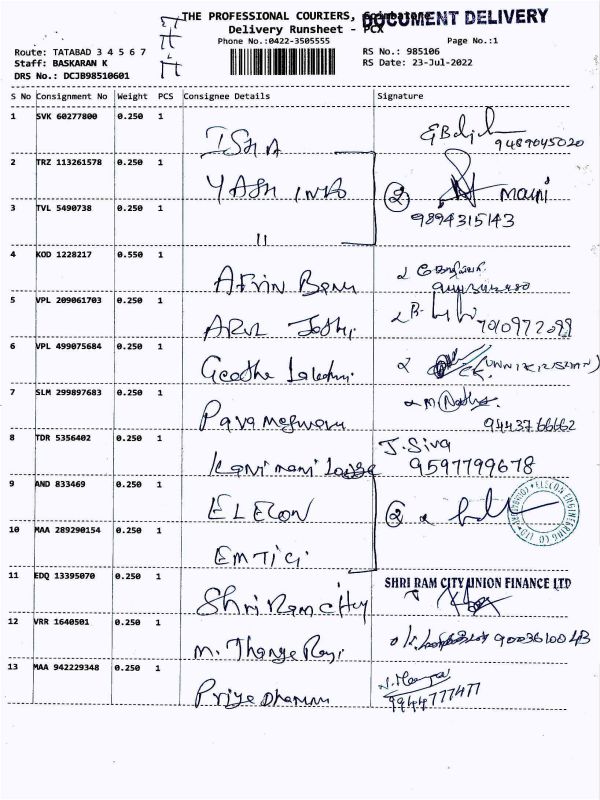 THE PROFESSIONAL COURIERS, Coimbatore
DOCUMENT DELIVERY
Delivery Runsheet - PCX
Phone No.:0422-3505555
Page No.:1
Route: TATABAD 3 4 5 6 7
RS No.: 985106
Staff: BASKARAN K
RS Date: 23-Jul-2022
DRS No.: DCJB98510601
S No Consignment No Weight PCS Consignee Details Signature
1 SVK 60277800 0.250 1 ISHA 9489045020
2 TRZ 113261578 0.250 1 YASH INFO ② mani
3 TVL 5490738 0.250 1 11 9894315143
4 KOD 1228217 0.550 1
5 VPL 209061703 0.250 1 ARUL Jothi 7010972099
6 VPL 499075684 0.250 1 Geetha
7 SLM 299897683 0.250 1 9443766662
8 TDR 5356402 0.250 1 J. Siva 9597799678
9 AND 833469 0.250 1 ELECON ②
10 MAA 289290154 0.250 1 EMTICI
11 EDQ 13395070 0.250 1 Shri Ram City SHRI RAM CITY UNION FINANCE LTD
12 VRR 1640501 0.250 1 M. Thangaraj
13 MAA 942229348 0.250 1 9944777477